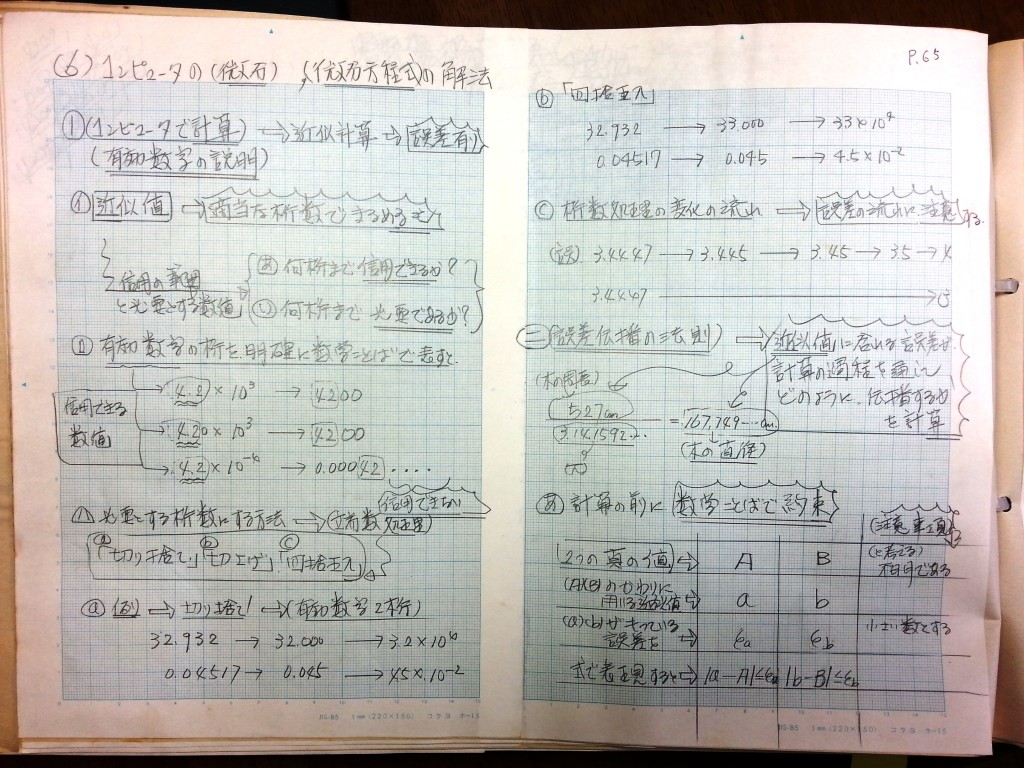 (6) コンピュータの(微石),(微分方程式)の解法
① (コンピュータで計算) → 近似計算 → 誤差有り
(有効数字の説明)
① 近似値 → 適当な桁数で
信用の範囲
と必要とする数値
あ 何桁まで信用できるか?
い 何桁まで必要であるか?
有効数字の桁を明確に数学ことばで表す
信用できる
数値
4.2 × 10³ → 4200
4.20 × 10³ → 4200
4.2 × 10⁻⁴ → 0.00042 ‥‥
信用できない
必要とする桁数にする方法 →
ⓐ ⓑ ⓒ
「切り捨て」「切上げ」「四捨五入」
ⓐ 例 → 切り捨て → (有効数字2桁)
32.932 → 32.000 → 3.2 × 10⁴
0.04517 → 0.045 → 45 × 10⁻²
JIS-B5 1mm(220×150) コクヨ ホ-15
P.65
ⓑ 「四捨五入」
32.932 → 33.000 → 33×10⁴
0.04517 → 0.045 → 4.5 × 10⁻²
ⓒ 桁数処理の変化の流れ → 誤差の流れに注意する
(誤) 3.4447 → 3.445 → 3.45 → 3.5 → 4
3.4447 → 3
三 (誤差伝播の法則) → 近似値に在れる誤差が
計算の過程を通して
どのように、伝播するか
を計算
(木の周長)
527cm
3.141592‥
= 167.749‥cm
(木の直径)
あ 計算の前に 数学ことばで約束
(注意事項)
2つの真の値 → A B
(A)(B)のかわりに
用いる近似値 → a b
(a)(b)がもっている
誤差を → εa εb 小さい数とする
式で表現すると → |a−A|≦εa |b−B|≦εb
JIS-B5 1mm(220×150) コクヨ ホ-15